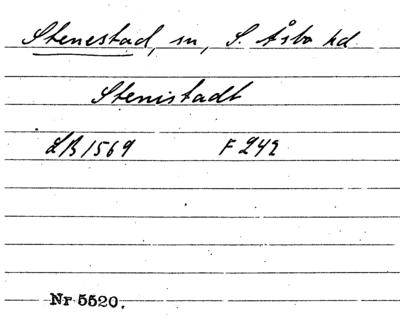 Stenestad, sn, S. Åsbo hd.
Stenistadt
LR 1569 F 242
Nr 5520.